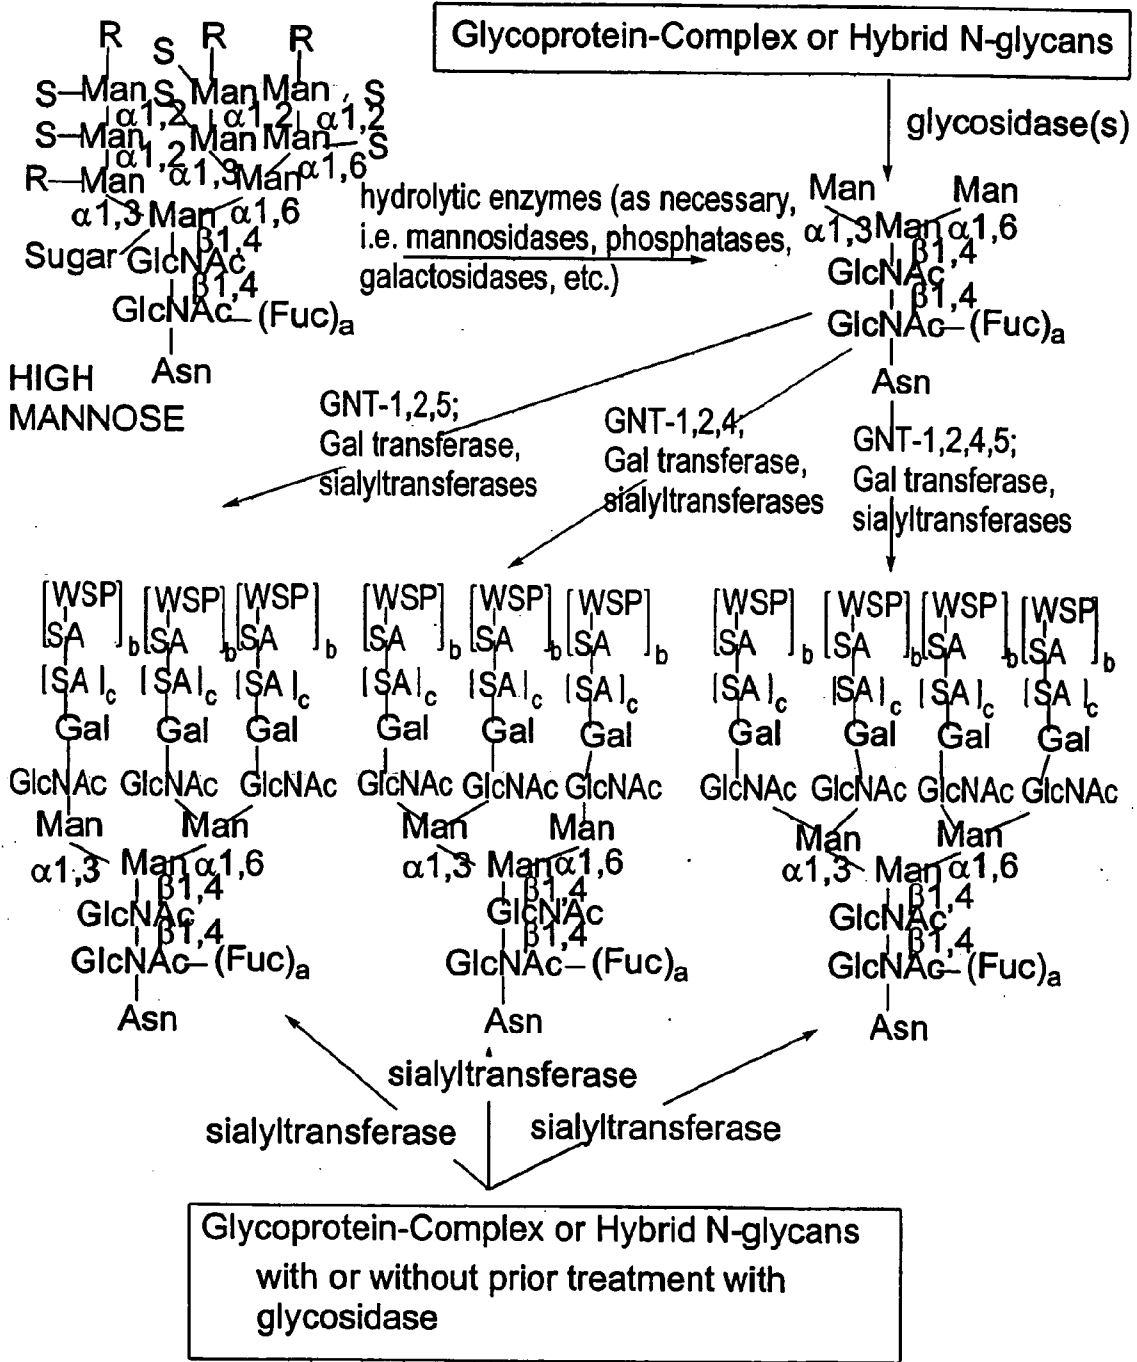 Glycoprotein-Complex or Hybrid N-glycans
glycosidase(s)
R S R R
S–Man S Man Man S
α1,2 α1,2 α1,2
S–Man Man Man –S
α1,2 α1,3 α1,6
R–Man Man
α1,3 Man α1,6
β1,4
Sugar GlcNAc
β1,4
GlcNAc–(Fuc)a
Asn
HIGH
MANNOSE
hydrolytic enzymes (as necessary,
i.e. mannosidases, phosphatases,
galactosidases, etc.)
Man Man
α1,3 Man α1,6
β1,4
GlcNAc
β1,4
GlcNAc–(Fuc)a
Asn
GNT-1,2,5;
Gal transferase,
sialyltransferases
GNT-1,2,4;
Gal transferase,
sialyltransferases
GNT-1,2,4,5;
Gal transferase,
sialyltransferases
[WSP] [WSP] [WSP]
[SA]b [SA]b [SA]b
[SA]c [SA]c [SA]c
Gal Gal Gal
GlcNAc GlcNAc GlcNAc
Man Man
α1,3 Man α1,6
β1,4
GlcNAc
β1,4
GlcNAc–(Fuc)a
Asn
[WSP] [WSP] [WSP]
[SA]b [SA]b [SA]b
[SA]c [SA]c [SA]c
Gal Gal Gal
GlcNAc GlcNAc GlcNAc
Man Man
α1,3 Man α1,6
β1,4
GlcNAc
β1,4
GlcNAc–(Fuc)a
Asn
[WSP] [WSP] [WSP] [WSP]
[SA]b [SA]b [SA]b [SA]b
[SA]c [SA]c [SA]c [SA]c
Gal Gal Gal Gal
GlcNAc GlcNAc GlcNAc GlcNAc
Man Man
α1,3 Man α1,6
β1,4
GlcNAc
β1,4
GlcNAc–(Fuc)a
Asn
sialyltransferase
sialyltransferase
sialyltransferase
Glycoprotein-Complex or Hybrid N-glycans
with or without prior treatment with
glycosidase